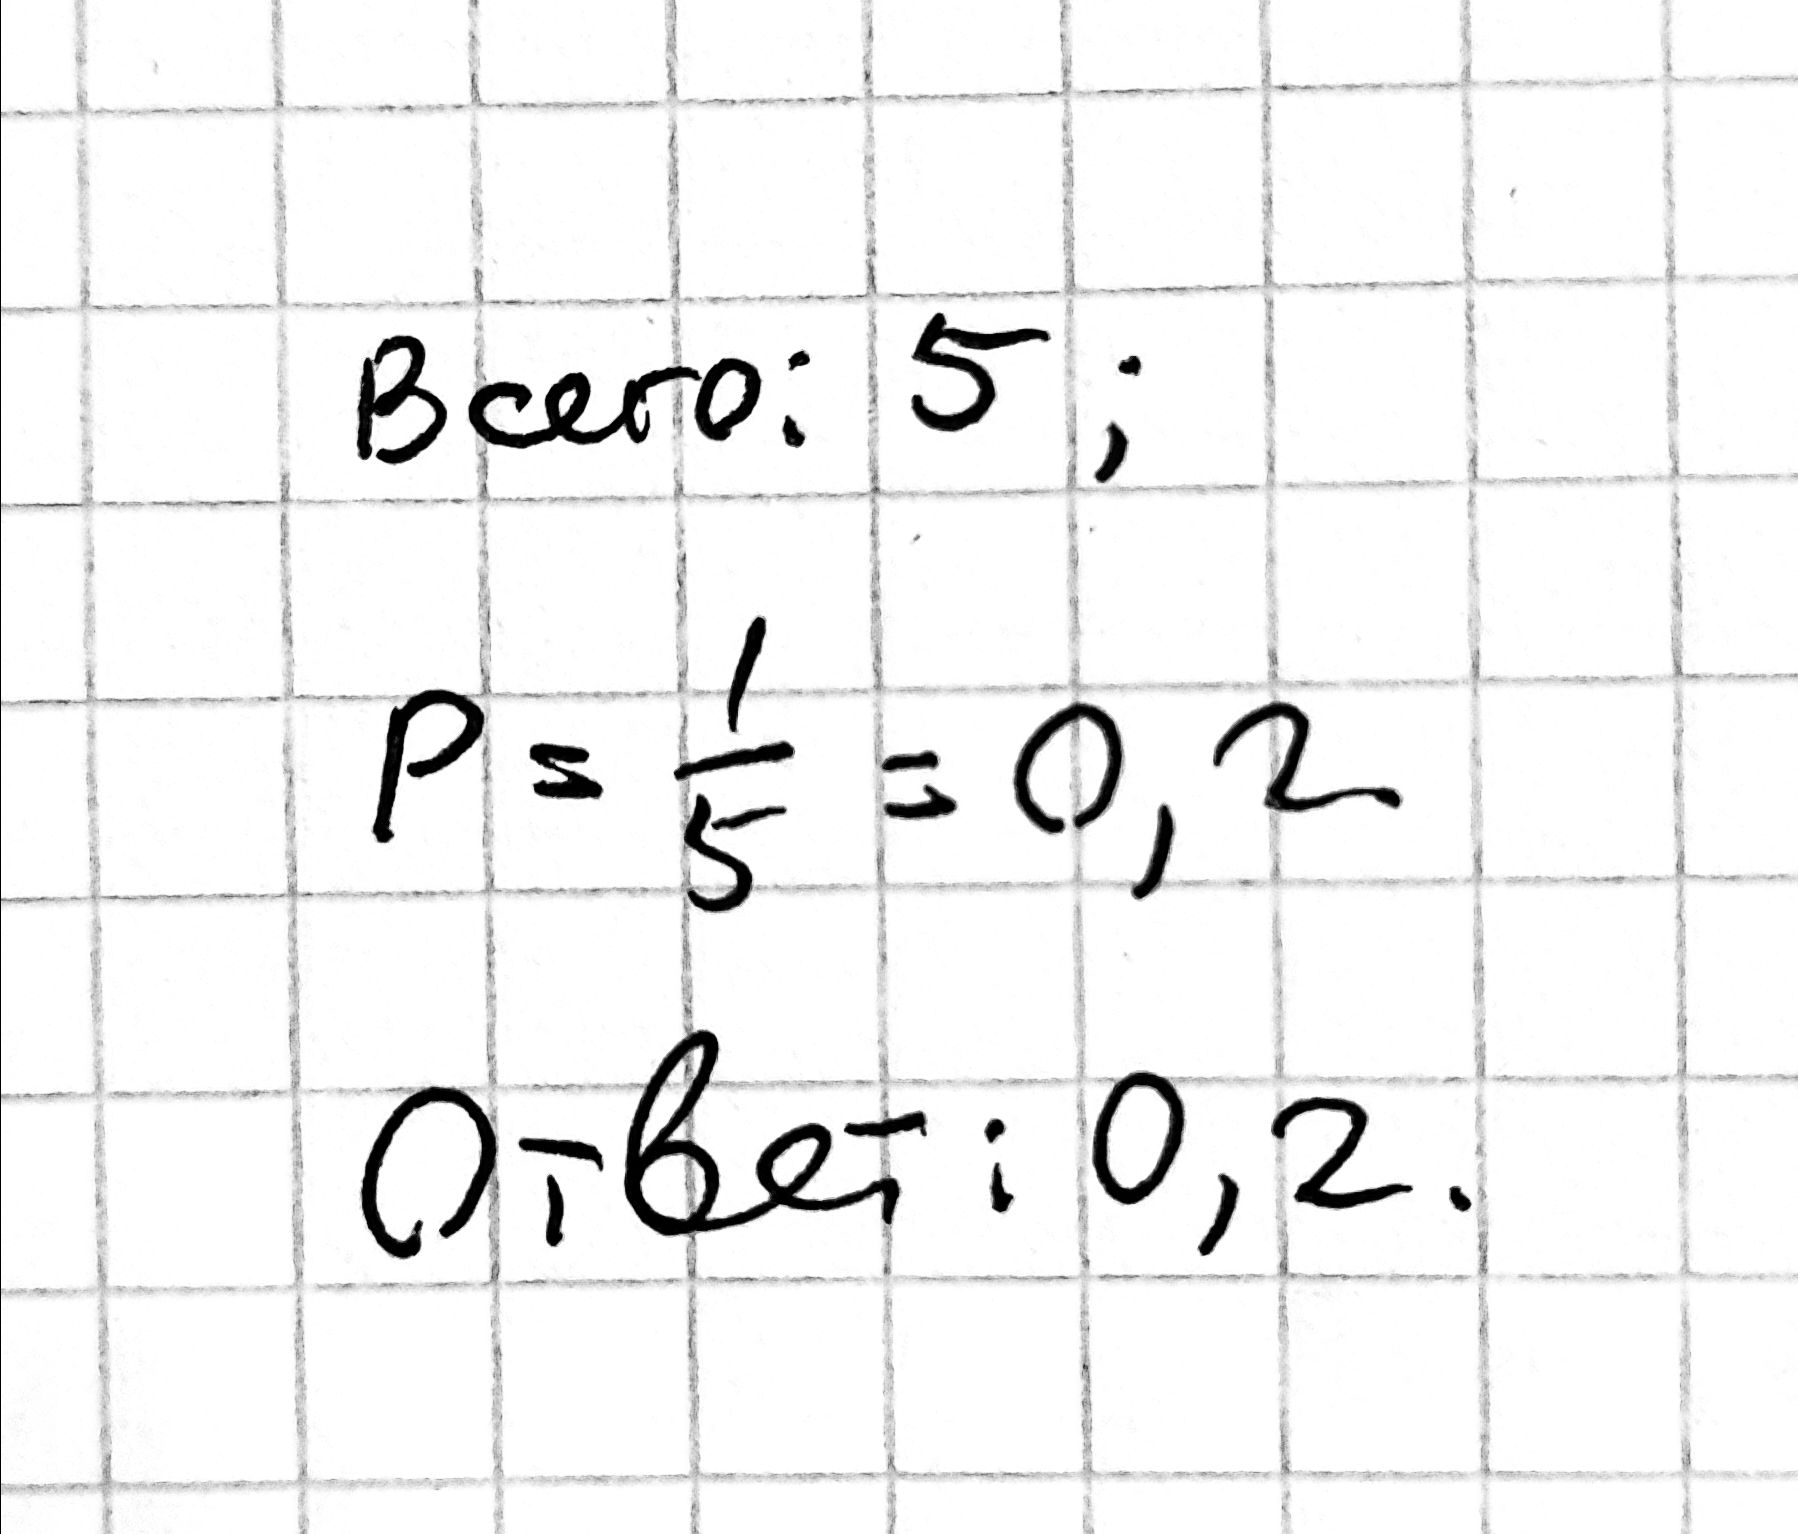 Всего: 5;
P = 1/5 = 0,2
Ответ: 0,2.